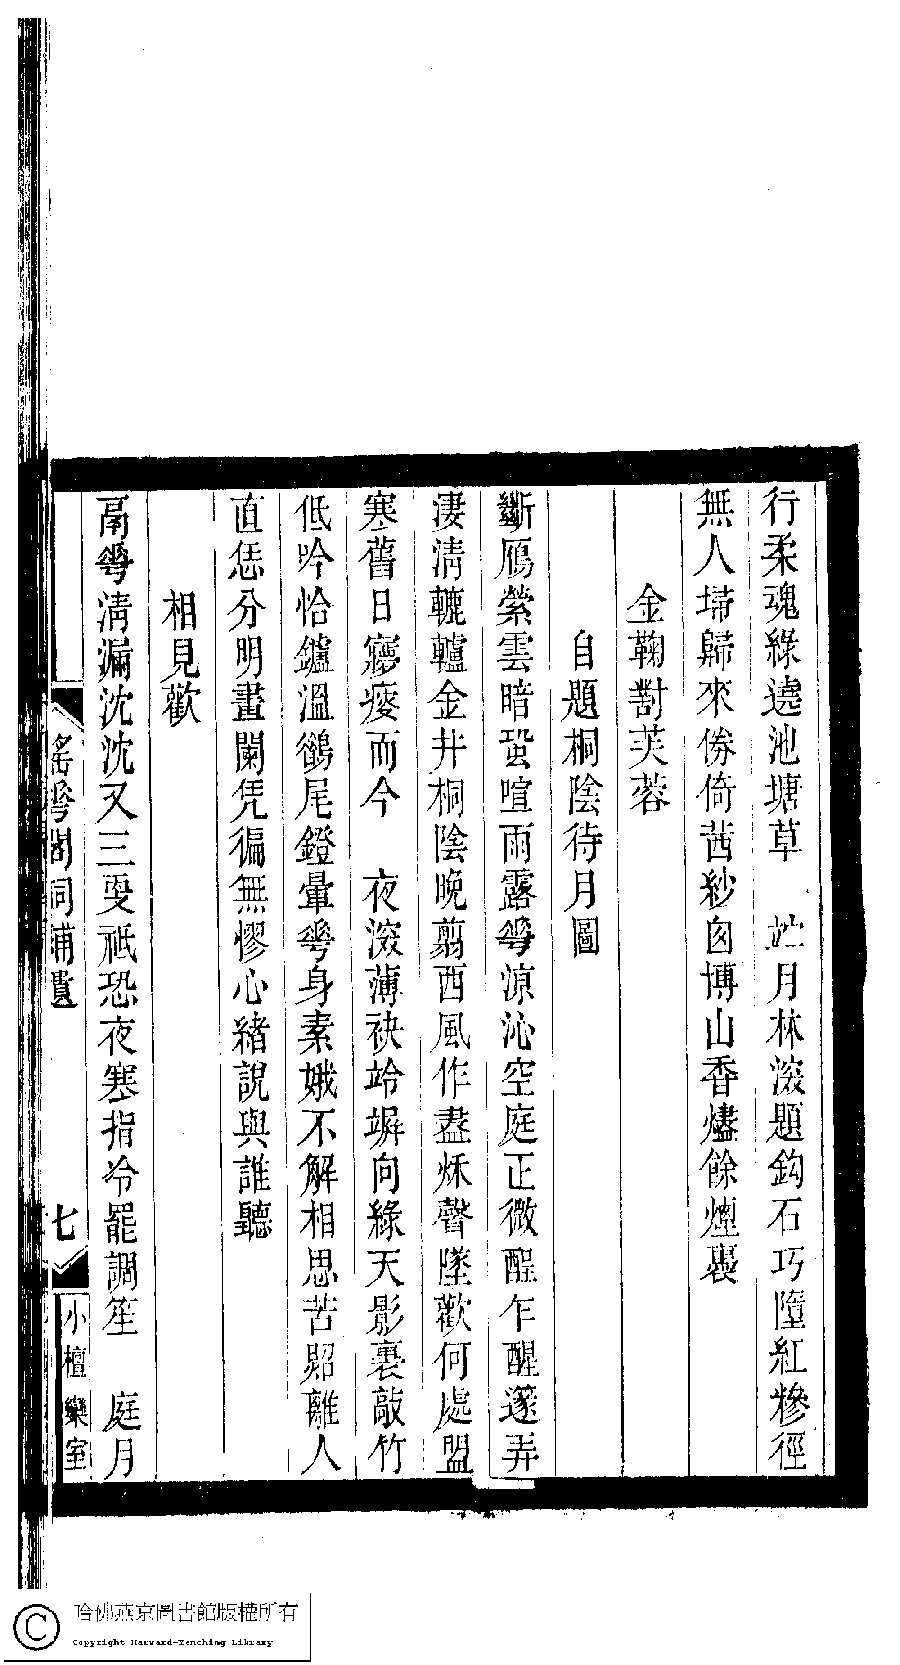 行柔魂綠遶池塘草　竚月林深題鈎石巧墮紅糝徑
無人埽歸來傍倚茜紗囱博山香燼餘煙裊
金鞠對芙蓉
自題桐陰待月圖
斷鴈縈雲暗蛩喧雨露華涼沁空庭正微酲乍醒邃弄
淒清轆轤金井桐陰晚翦西風作盡秌聲墜歡何處盟
寒舊日夢瘦而今　夜深薄袂竛竮向綠天影裏敲竹
低吟恰鑪溫鵮尾鐙暈華身素娥不解相思苦照離人
直恁分明畫闌凭徧無憀心緒說與誰聽
相見歡
鬲華淸漏沈沈又三更祇恐夜寒指冷罷調笙　庭月
瑤華閣詞補遺
七
小檀欒室
哈佛燕京圖書館版權所有
Copyright Harvard-Yenching Library